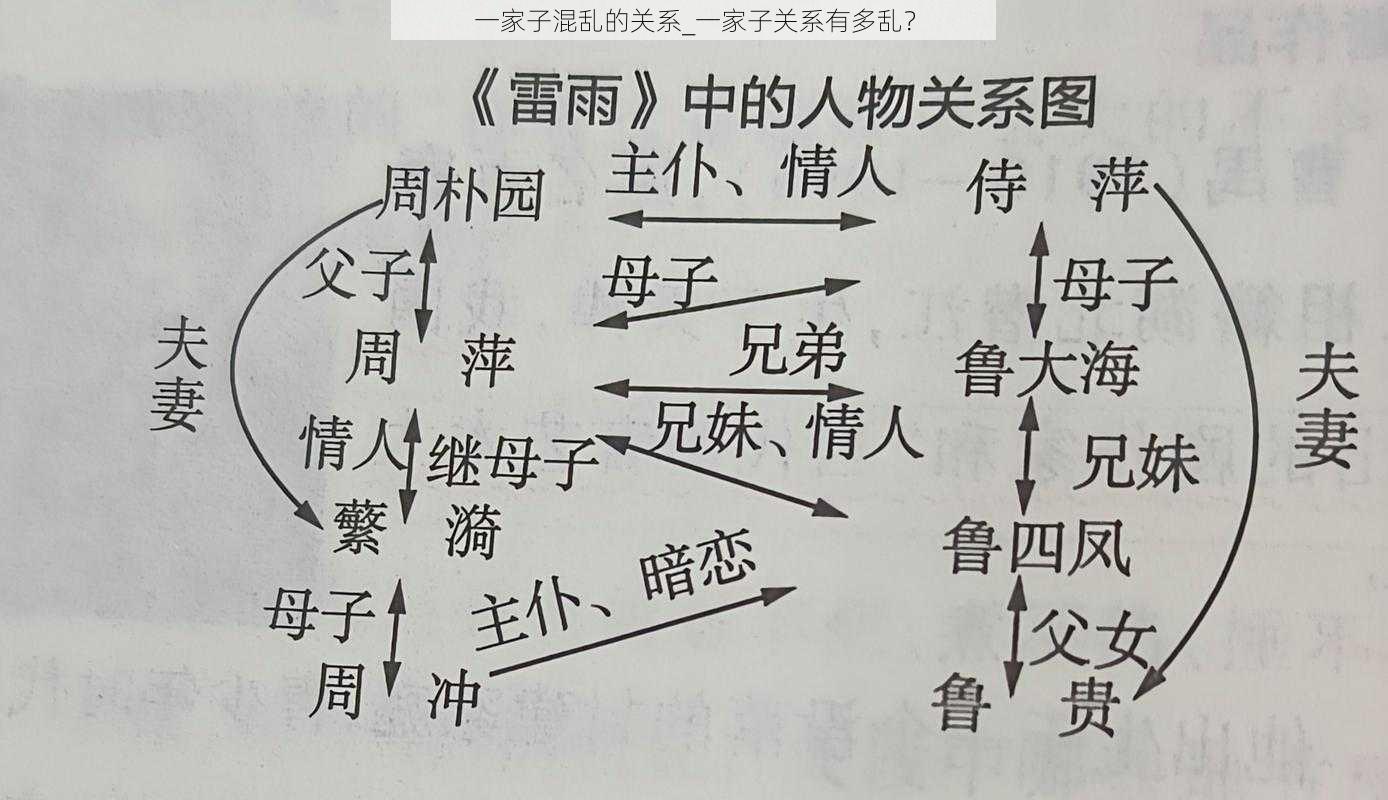 一家子混乱的关系_一家子关系有多乱？
《雷雨》中的人物关系图
周朴园 主仆、情人 侍 萍
父子 母子 母子
夫妻 周 萍 兄弟 鲁大海 夫妻
情人 继母子 兄妹、情人 兄妹
蘩 漪 鲁四凤
母子 主仆、暗恋 父女
周 冲 鲁 贵